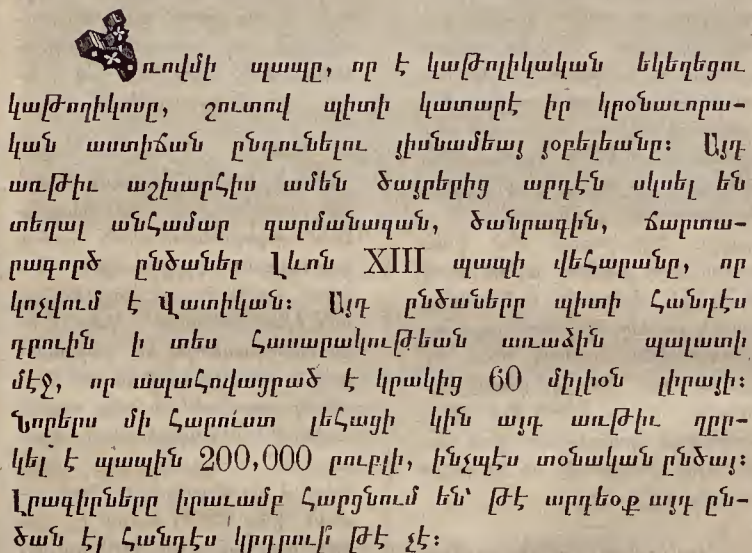 Հռովմի պապը, որ է կաթոլիկական եկեղեցու
կաթողիկոսը, շուտով պիտի կատարէ իր կրօնաւորա-
կան աստիճան ընդունելու յիսնամեայ յօբելեանը: Այդ
առթիւ աշխարհիս ամեն ծայրերից արդէն սկսել են
տեղալ անհամար զարմանազան, ծանրագին, ճարտա-
րագործ ընծաներ Լևոն XIII պապի վեհարանը, որ
կոչվում է Վատիկան: Այդ ընծաները պիտի հանդէս
դրուին ի տես հասարակութեան առաձին պալատի
մէջ, որ ապահովացրած է կրակից 60 միլիօն լիրայի:
Նորերս մի հարուստ լեհացի կին այդ առթիւ ղըր-
կել է պապին 200,000 րուբլի, ինչպէս տօնական ընծայ:
Լրագիրները իրաւամբ հարցնում են՝ թէ արդեօք այդ ըն-
ծան էլ հանդէս կրդրուի՞ թէ չէ: